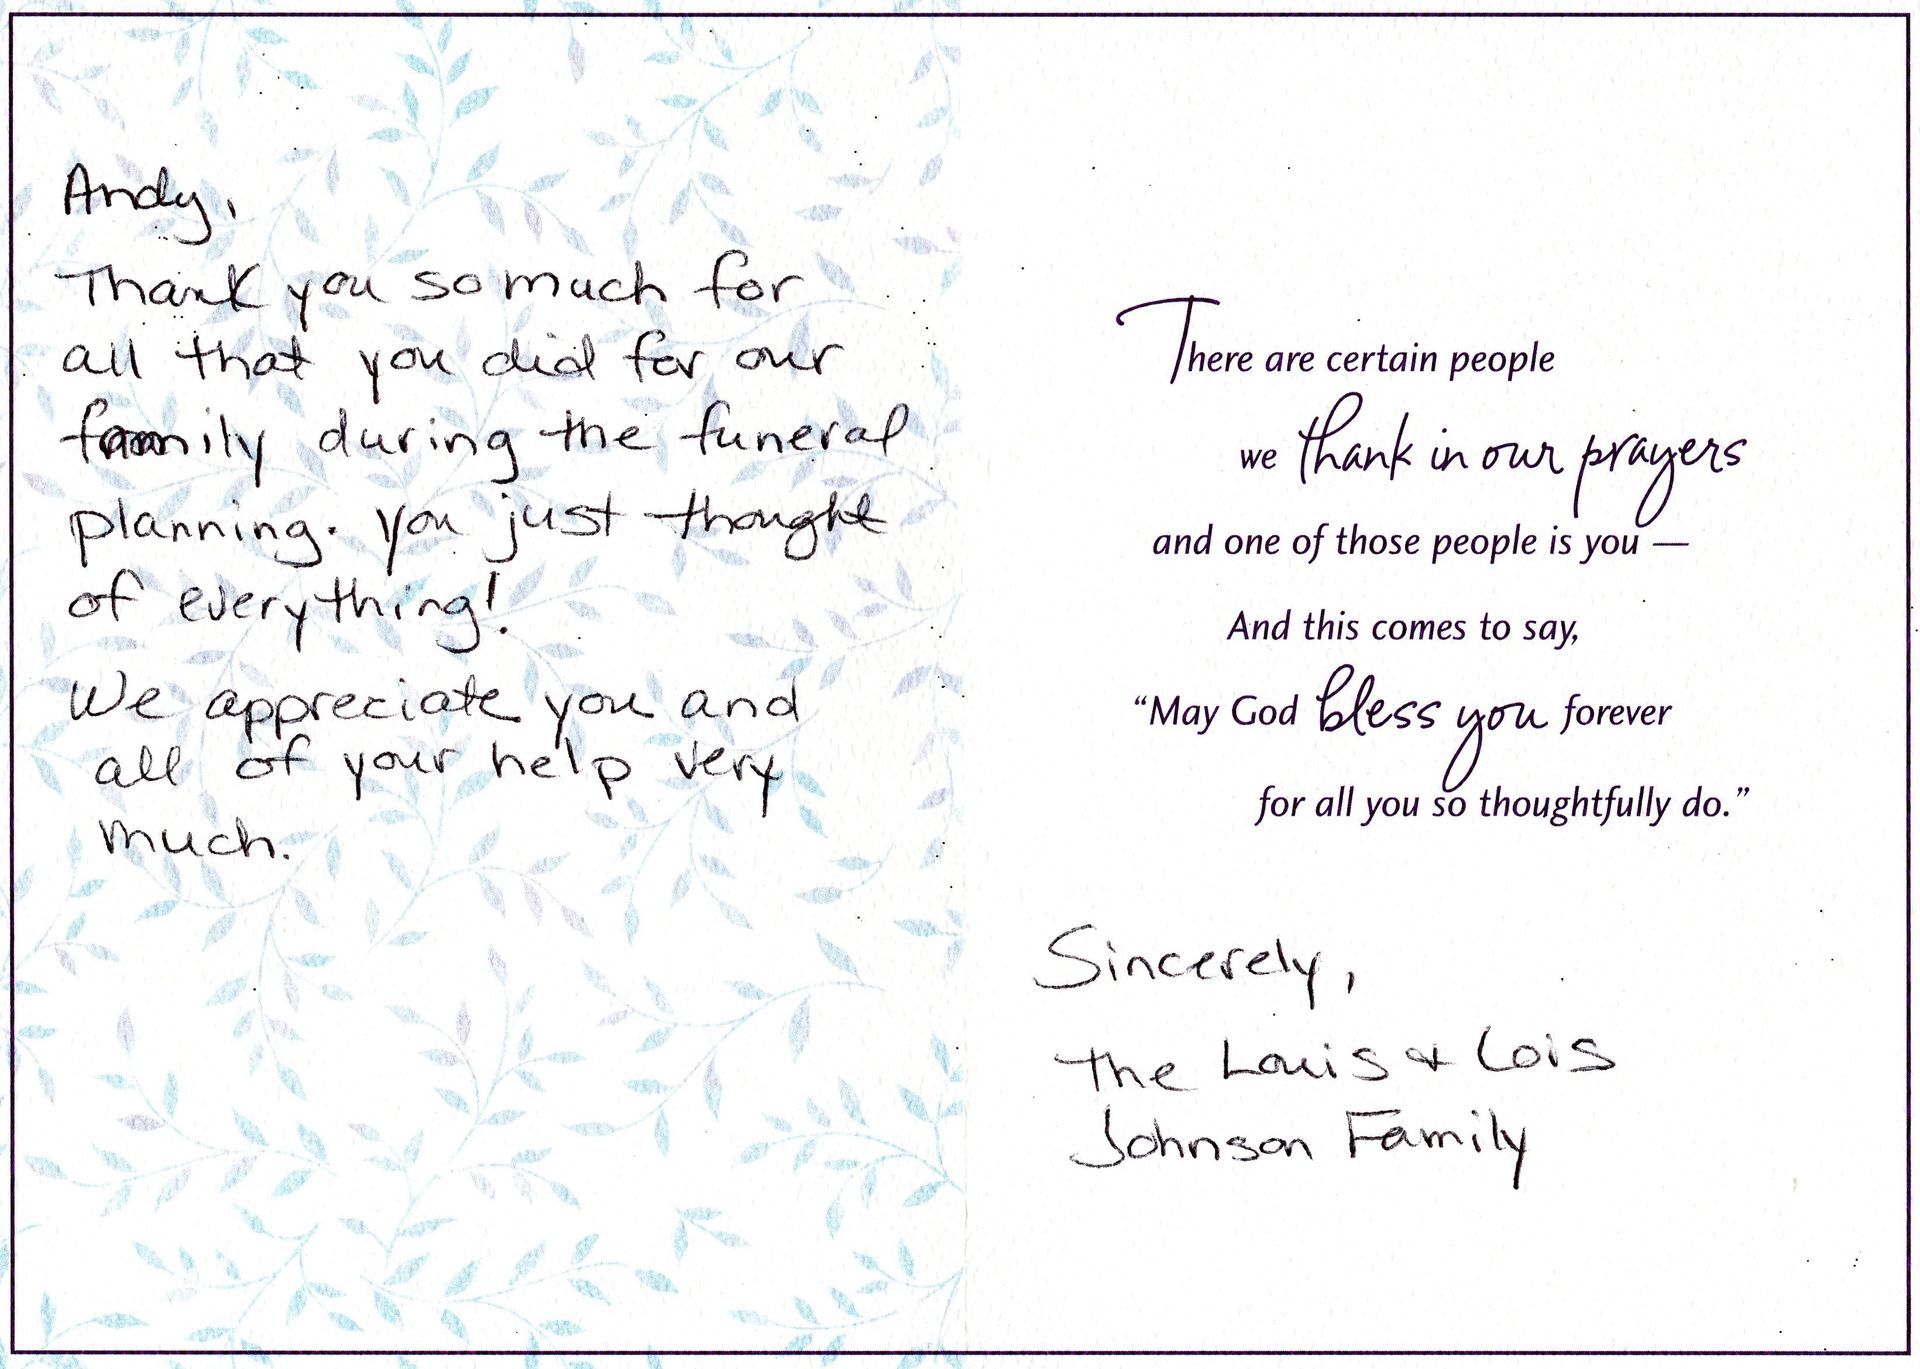 Andy,
Thank you so much for
all that you did for our
family during the funeral
planning. You just thought
of everything!
We appreciate you and
all of your help very
much.
There are certain people
we thank in our prayers
and one of those people is you —
And this comes to say,
“May God bless you forever
for all you so thoughtfully do.”
Sincerely,
The Louis & Lois
Johnson Family